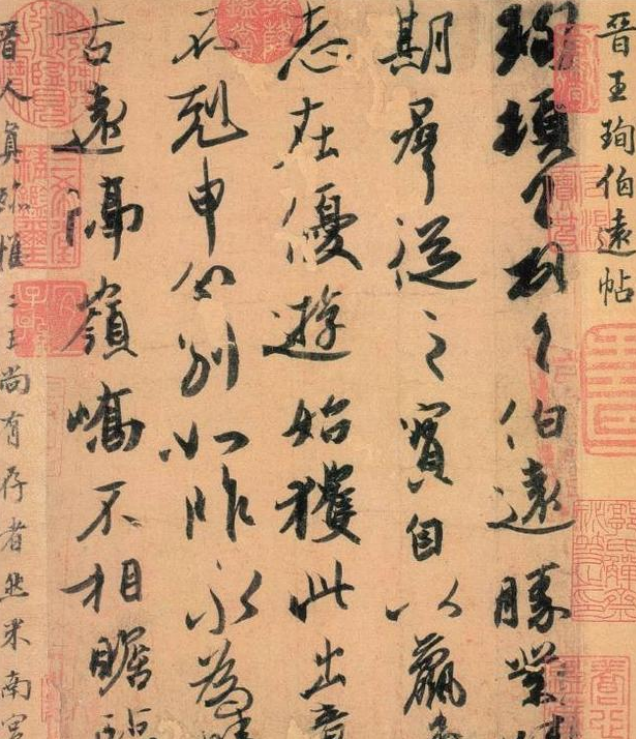 晉王珣伯遠帖
珣頓首頓首伯遠勝業
期群從之寶自以羸
志在優遊始獲此出意
不剋申分別如昨永為
古遠隔嶺嶠不相瞻臨
晉人真跡惟二王尚有存者然米南宮